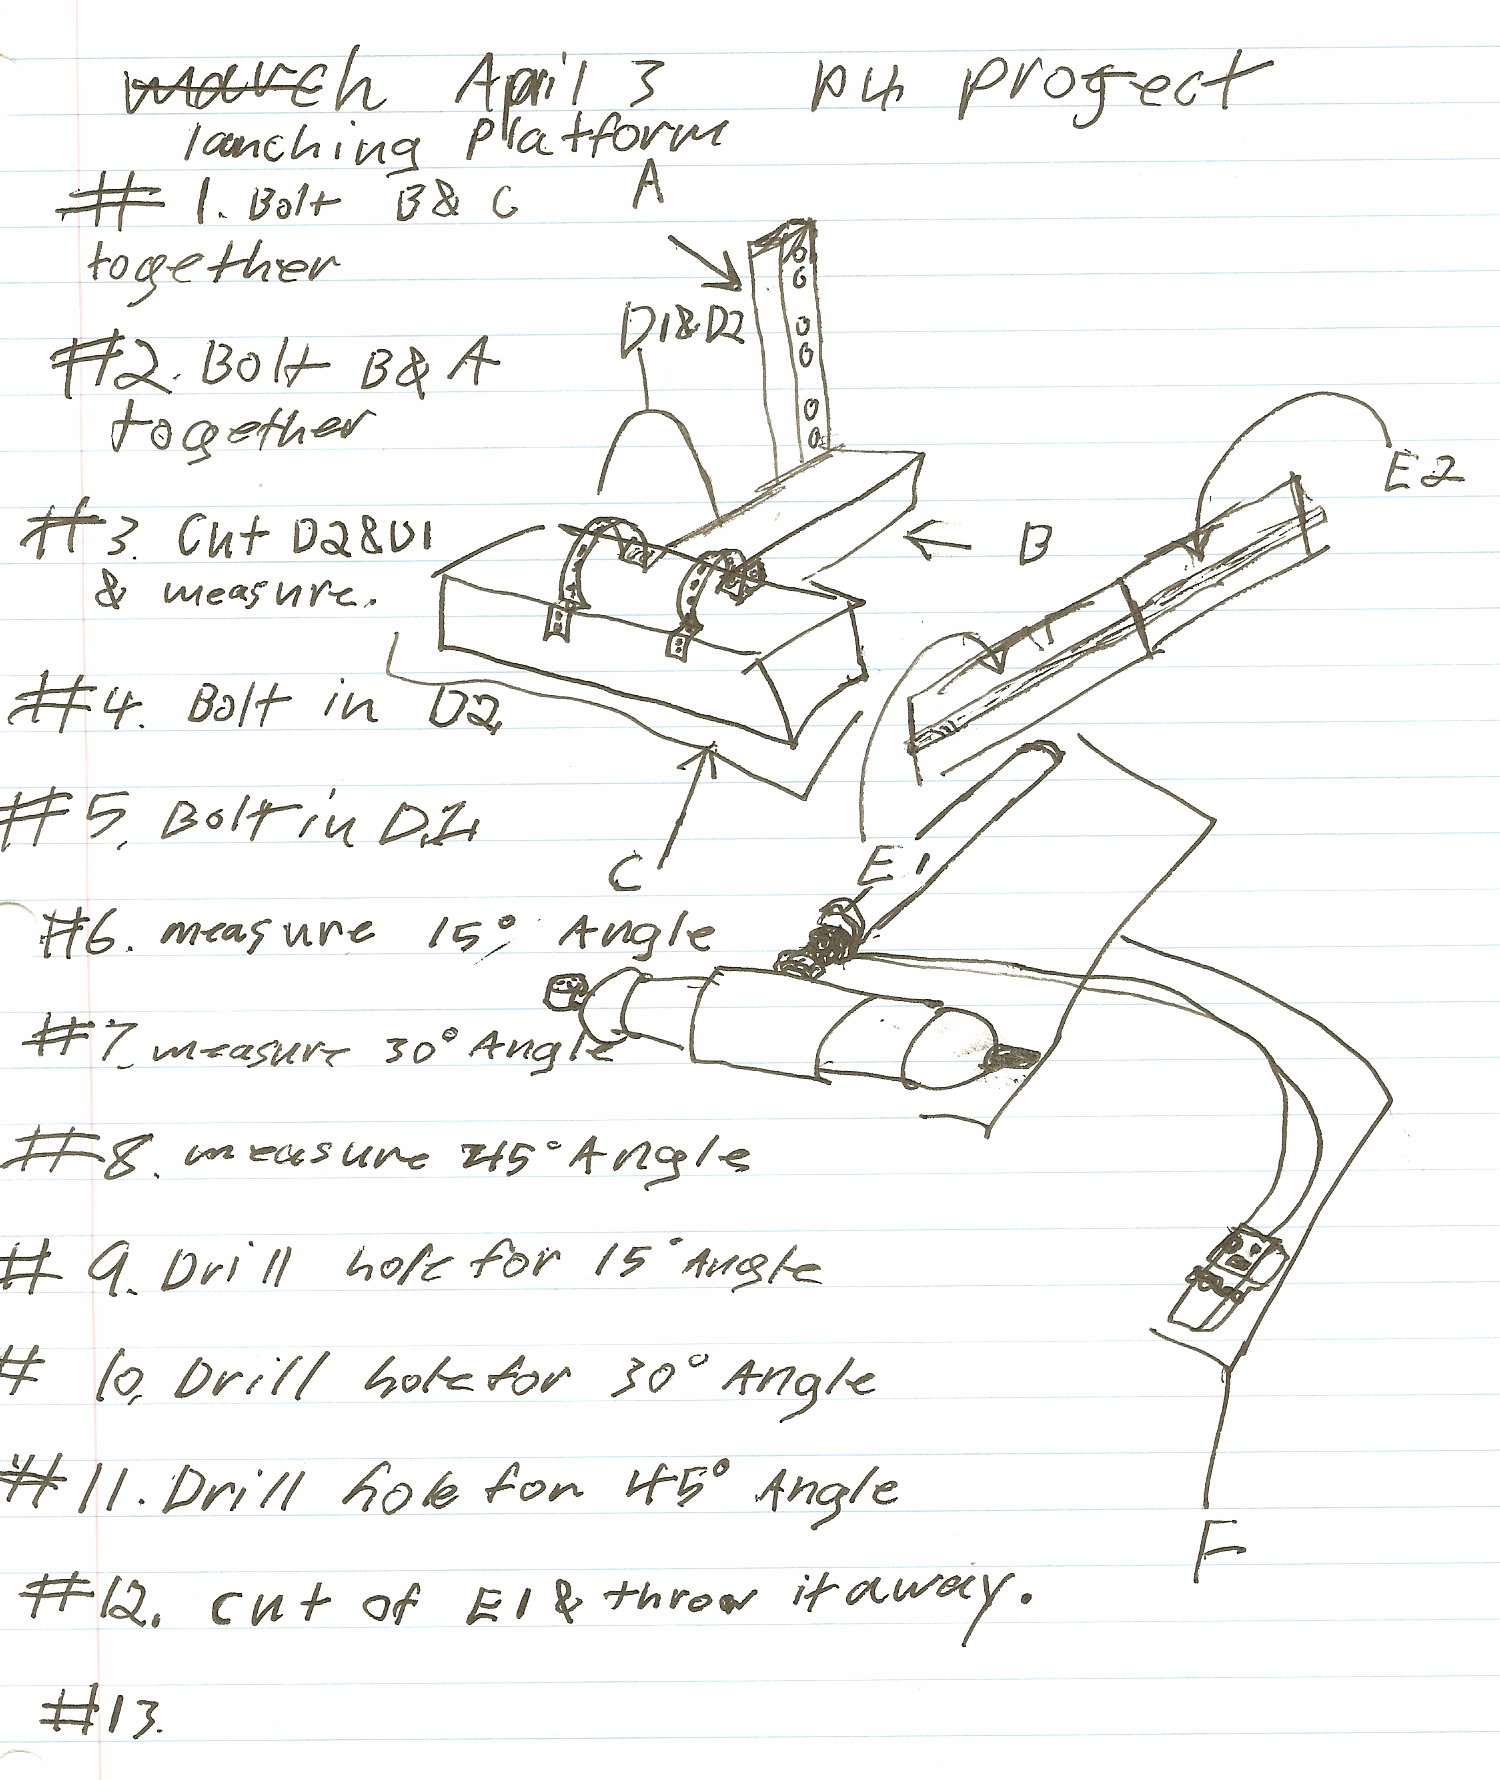 march April 3 P4 progect
lanching Platform
# 1. Bolt B & C
together
#2. Bolt B & A
together
#3. Cut D2 & D1
& measure.
#4. Bolt in D2
#5. Bolt in D1
#6. measure 15° Angle
#7. measure 30° Angle
#8. measure 45° Angle
# 9. Drill hole for 15° Angle
# 10. Drill hole for 30° Angle
#11. Drill hole for 45° Angle
#12. cut of E1 & throw it away.
#13.
A
D1&D2
E2
B
C
E1
F